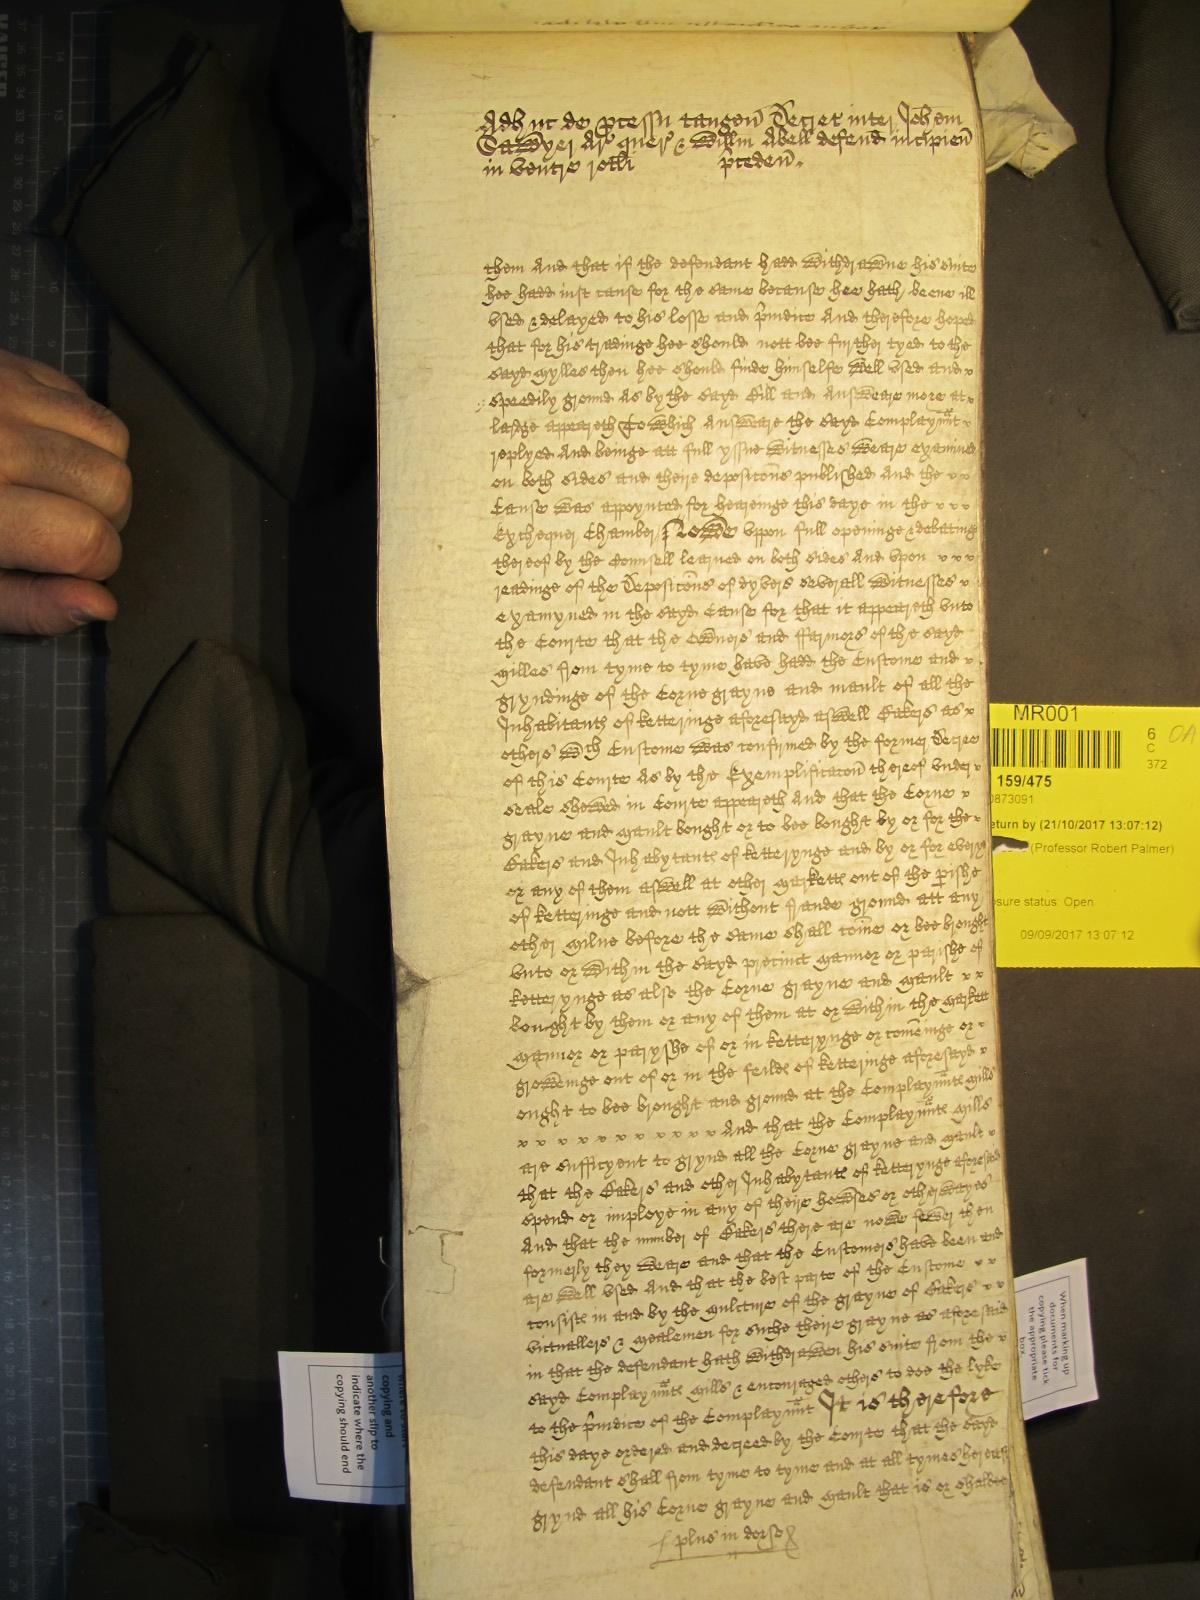 Adhuc de p̱cessu tangeñ Decret inter Joh̃em
Sawyer Ar̃ quer̃ & Willm̃ Abell defend incipieñ
in ventre rotli p̃cedeñ.
them And that if the defendant hadd withdrawne his suite
hee hadd iust cause for the same because hee hath beene ill
vsed & delayed to his losse and p̃iudice And therefore hoped
that for his tradinge hee should nott bee further tyed to the
sayd Mylles then hee should finde himselfe well vsed and
speedily ground As by the sayd Bill and Answeare more at
lardge appeareth To which Answeare the sayd Complaynᵃⁿt
replyed And beinge att full yssue witnesses weare examined
on both sides and theire deposic̃ons published And the
Cause was appoynted for hearinge this daye in the
Exchequer Chamber Nowe vppon full openinge & debatinge
thereof by the Counsell learned on both sides And vpon
readinge of the Deposic̃ons of dyvers severall witnesses
examyned in the sayd Cause for that it appeareth vnto
the Courte that the owners and ffarmors of the sayd
Milles from tyme to tyme have hadd the Custome and
gryndinge of the Corne grayne and mault of all the
Inhabitantes of Ketteringe aforesayd aswell Bakers as
others wᶜh Custome was confirmed by the former Decree
of this Courte As by the Exemplificac̃on thereof vnder
seale shewed in Courte appeareth And that the Corne
grayne and Mault bought or to bee bought by or for the
Bakers and Inhabytantes of Ketterynge and by or for every
or any of them aswell at other Markettes out of the p̱ishe
of Ketteringe and nott without fraude ground att any
other Milne before the same shall com̃e or bee brought
vnto or within the sayd precinct Mannor or parishe of
Ketterynge as also the Corne grayne and Mault
bought by them or any of them at or within the Markett
Mannor or paryshe of or in Ketterynge or com̃einge or
groweinge out of or in the feildes of Ketteringe aforesayd
ought to bee brought and ground at the Complaynᵃⁿtes Mills
And that the Complaynᵃⁿtes Mills
are sufficyent to grynd all the Corne grayne and Mault
that the Bakers and other Inhabytantes of Ketterynge aforesaid
spend or imploye in any of theire howses or otherwayes
And that the number of Bakers there are nowe fewer then
formerly they weare and that the Customers have been and
are well vsed And that the best parte of the Custome
consistes in and by the Mulcture of the grayne of Bakers
victuallers & Mealemen for suche theire grayne as aforesaid
in that the defendant hath withdrawen his suite from the
sayd Complaynᵃⁿtes Mills & encouraged others to doe the lyke
to the p̃iudice of the Complaynᵃⁿt It is therefore
this daye ordered and decreed by the Courte that the sayd
defendant shall from tyme to tyme and at all tymes hereaft
grynd all his Corne grayne and Mault that is or shalbee
plus in dorso
MR001
6
C
372
OA
159/475
0873091
eturn by (21/10/2017 13:07:12)
(Professor Robert Palmer)
osure status: Open
09/09/2017 13:07:12
When marking up
documents for
copying please tick
the appropriate
box
copying and
another slip to
indicate where the
copying should end